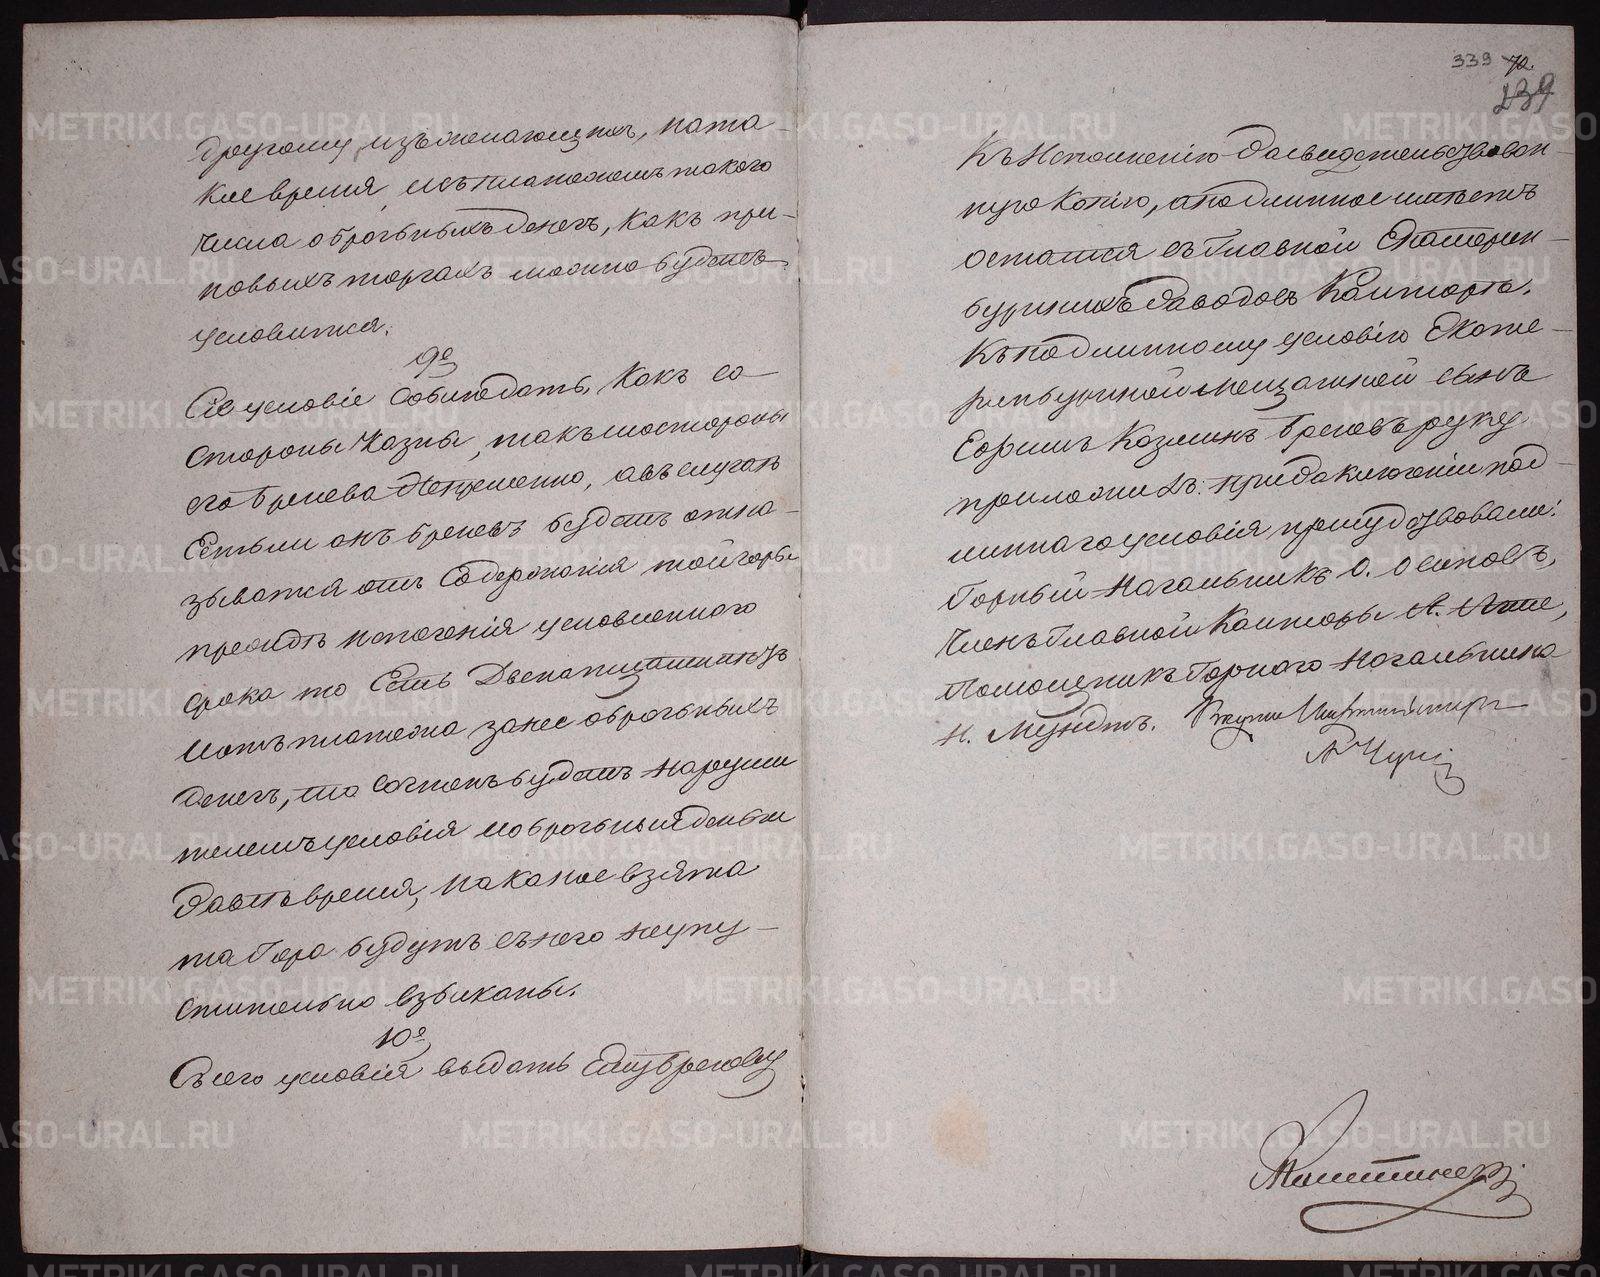 другому изъ желающихъ, на та-
кое время, и съ платежемъ такого
числа оброчныхъ денегъ, какъ при
новыхъ торгахъ можно будетъ
условится.
9е
Сіе условіе соблюдать, какъ со
стороны казны, такъ и со стороны
его Брехова непременно, а въ случае
Естьли онъ Бреховъ будетъ отка-
зыватся отъ содержанія той горы
прежде истеченія условленного
срока то Есть Двенатцатилетъ
и отъ платежа занее оброчныхъ
денегъ, то сочтенъ будетъ наруши
телемъ условія и оброчныя деньги
завсе время, на какое взята
та Гора будутъ съ него неупу-
стительно взысканы.
10е
Съ сего условія выдать Ему Брехову
339 72.
239
Къ Исполненію Засвидетельствован-
ную Копію, а подлинное имеетъ
остатся въ Главной Екатерин-
бургскихъ Заводовъ Канторе.
Къ подлинному условію Екате-
ринбургской мещанской сынъ
Ефимъ Козминъ Бреховъ руку
приложилъ. При заключеніи под-
линнаго условія присудствовали:
Горный Начальникъ О. Осиповъ,
Членъ Главной Канторы А.
Помощникъ Горного Начальника
И. Мундтъ.